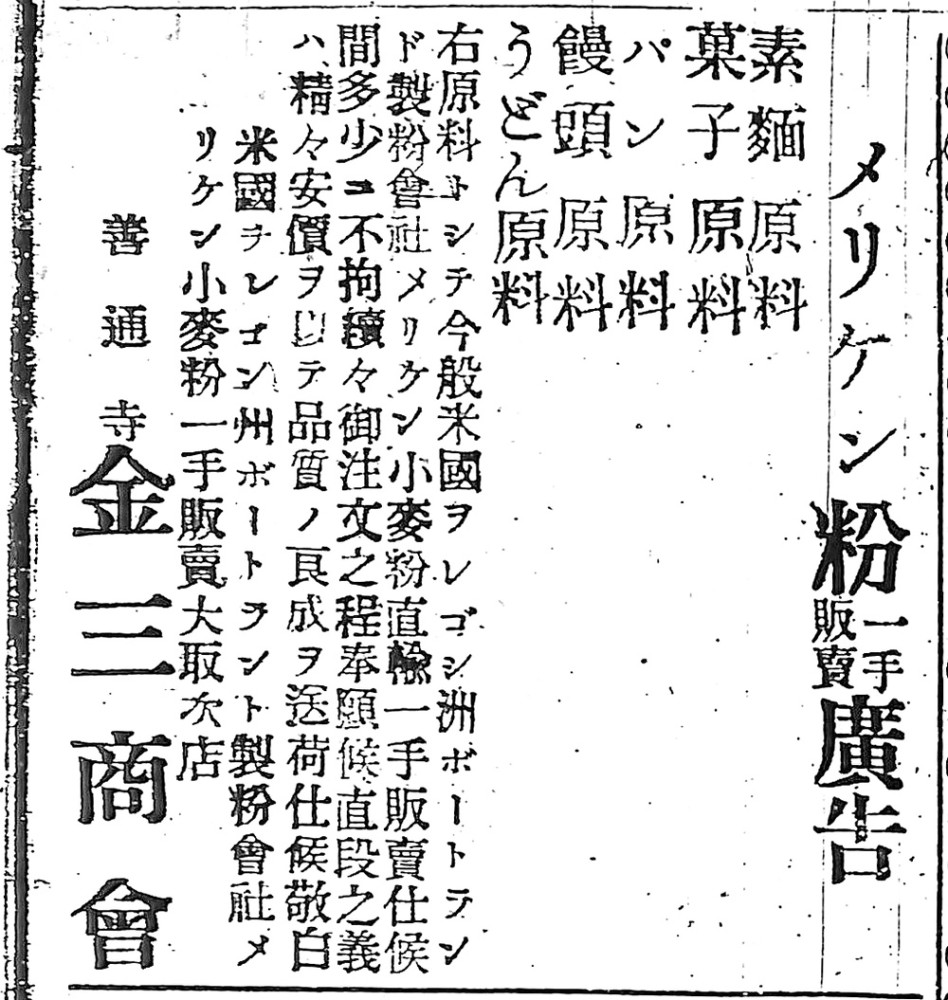 メリケン粉一手販賣廣告
素麵原料
菓子原料
パン原料
饅頭原料
うどん原料
右原料トシテ今般米國ヲレゴシ洲ボートラン
ド製粉會社メリケン小麥粉直輸一手販賣仕候
間多少ニ不拘續々御注文之程奉願候直段之義
ハ精々安價ヲ以テ品質ノ良成ヲ送荷仕候敬白
米國ヲレゴン州ボートランド製粉會社メ
リケン小麥粉一手販賣大取次店
善通寺金三商會